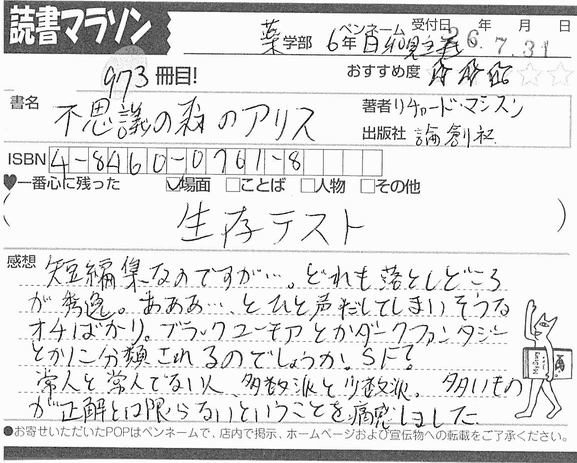 読書マラソン
薬学部 6年 ペンネーム 日和見主義 受付日 26年7月31日
973冊目!
おすすめ度 ☆☆☆☆☆
書名 不思議の森のアリス
著者 リチャード・マシスン
出版社 論創社
ISBN 4-8460-0761-8
♥一番心に残った ☑場面 □ことば □人物 □その他
(生存テスト)
感想 短編集なのですが…。どれも落としどころ
が秀逸。あああ…、とひと声だしてしまいそうな
オチばかり。ブラックユーモアとかダークファンタジー
とかに分類されるのでしょうか。SF?
常人と常人でない人、多数派と少数派。多いもの
が正解とは限らないということを痛感しました
●お寄せいただいたPOPはペンネームで、店内で掲示、ホームページおよび宣伝物への転載をご了承ください。